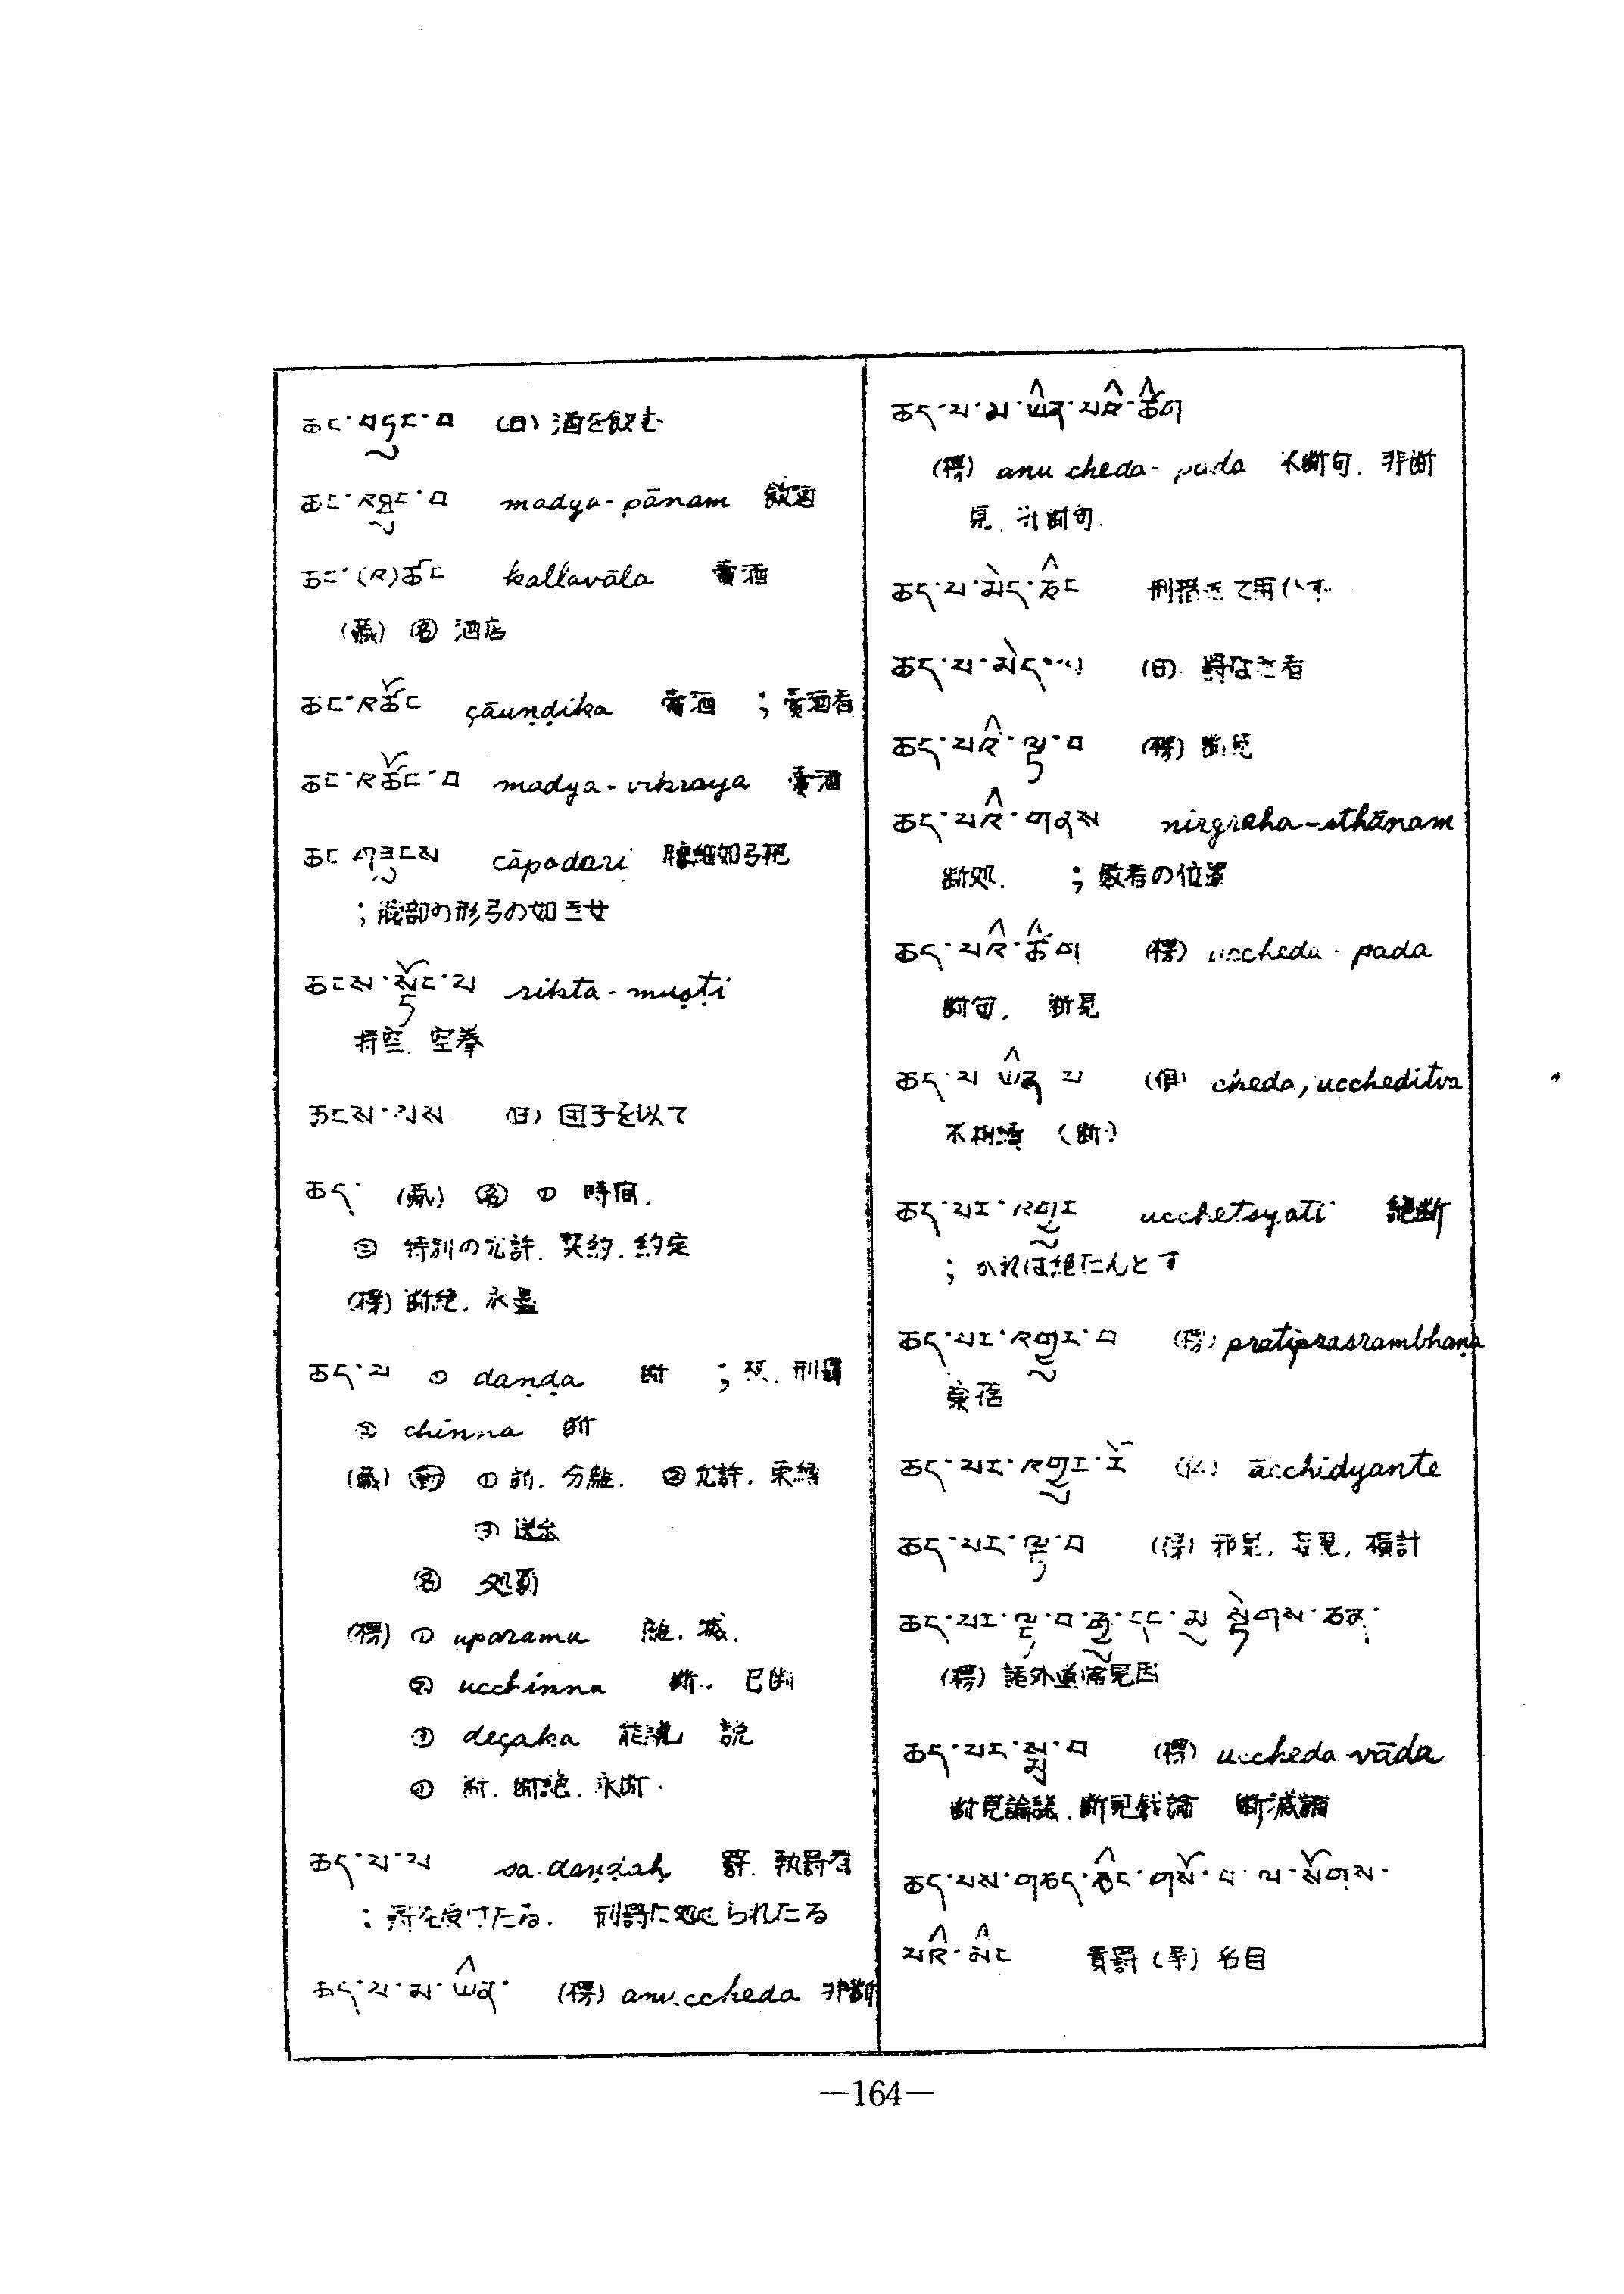 ཆང་བཏུང་བ (日) 酒を飲む
ཆང་འཐུང་བ madya-pānam 飲酒
ཆང་(འ)ཚོང kallavāla 賣酒
(蔵) 名 酒店
ཆང་འཚོང çāuṇḍika 賣酒 ; 賣酒者
ཆང་འཚོང་བ madya-vikraya 賣酒
ཆང གཟུངས cāpodari 腰細如弓把
; 腹部の形弓の如き女
ཆངས་སྟོང་པ rikta-muṣṭi
持空. 空拳
ཆངས་པས (日) 団子を以て
ཆད་ (蔵) 名 ① 時間.
② 特別の允許. 契約. 約定
(楞) 断絶. 永盡
ཆད་པ ① daṇḍa 断 ; 杖. 刑罰
② chinna 断
(蔵) 動 ① 断. 分離. ② 允許. 束縛
③ 送出
名 処罰
(楞) ① uparama 離. 滅.
② ucchinna 断. 已断
③ deçaka 能説 説
④ 断. 断絶. 永断.
ཆད་པ་པ sa-daṇḍaḥ 罰. 執罰者
; 罰を受けたる. 刑罰に処せられたる
ཆད་པ་མ་ཡིན་ (楞) anuccheda 非断
ཆད་པ་མ་ཡིན་པའི་ཚིག
(楞) anucheda-pada 不断句. 非断
見. 非断句.
ཆད་པ་མེད་ཅིང 刑罰を用いず
ཆད་པ་མེད་པ (日) 罰なき者
ཆད་པའི་ལྟ་བ (楞) 断見
ཆད་པའི་གནས nirgraha-sthānam
断処. ; 敗者の位置
ཆད་པའི་ཚིག (楞) uccheda-pada
断句. 断見
ཆད་པ ཡིན པ (倶) cheda, uccheditva
不相續 (断)
ཆད་པར་འགྱུར ucchetsyati 絶断
; かれは絶たんとす
ཆད་པར་འགྱུར་བ (楞) pratiprasrambhaṇa
棄捨
ཆད་པར་འགྱུར་རོ ācchidyante
ཆད་པར་ལྟ་བ (楞) 邪見. 妄見. 横計
ཆད་པར་ལྟ་བ་རྒྱུ་དང་མུ སྟེགས་ཅན་
(楞) 諸外道常見因
ཆད་པར་སྨྲ་བ (楞) uccheda vāda
断見論議. 断見戲論 断滅論
ཆད་པས་གཅད་ཅིང་གསོ་བ་ལ་སོགས་
པའི་མིང 責罰 (等) 名目
—164—